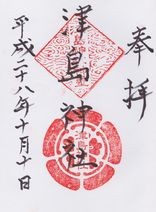 奉拝
津島神社
平成二十八年十月十日